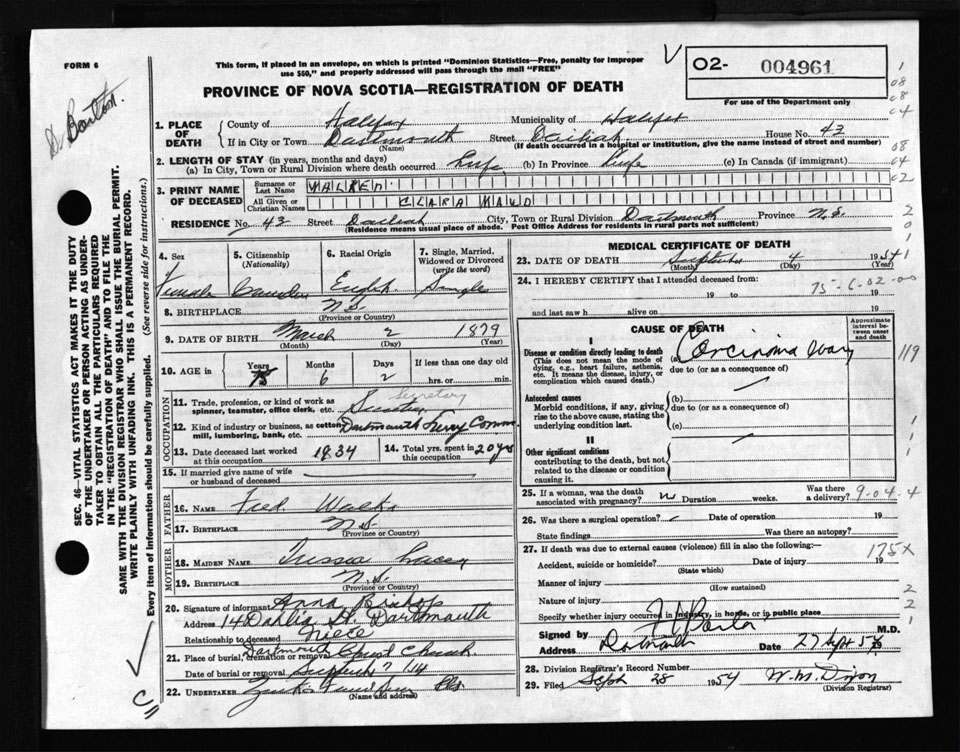 FORM 6
This form, if placed in an envelope, on which is printed "Dominion Statistics—Free, penalty for improper
use $50," and properly addressed will pass through the mail "FREE"
02- 004961
For use of the Department only
PROVINCE OF NOVA SCOTIA—REGISTRATION OF DEATH
SEC. 46—VITAL STATISTICS ACT MAKES IT THE DUTY
OF THE UNDERTAKER OR PERSON ACTING AS UNDER-
TAKER TO OBTAIN ALL THE PARTICULARS REQUIRED
IN THE "REGISTRATION OF DEATH" AND TO FILE THE
SAME WITH THE DIVISION REGISTRAR WHO SHALL ISSUE THE BURIAL PERMIT.
WRITE PLAINLY WITH UNFADING INK. THIS IS A PERMANENT RECORD.
Every item of information should be carefully supplied. (See reverse side for instructions.)
1. PLACE OF DEATH County of Halifax Municipality of Halifax
If in City or Town Dartmouth Street House No. 43
(Name) (If death occurred in a hospital or institution, give the name instead of street and number)
2. LENGTH OF STAY (in years, months and days)
(a) In City, Town or Rural Division where death occurred Life (b) In Province Life (c) In Canada (if immigrant)
3. PRINT NAME OF DECEASED Surname or Last Name
All Given or Christian Names CLARA MAUD
RESIDENCE No. 43 Street City, Town or Rural Division Dartmouth Province N.S.
(Residence means usual place of abode. Post Office Address for residents in rural parts not sufficient)
4. Sex 5. Citizenship (Nationality) 6. Racial Origin 7. Single, Married, Widowed or Divorced (write the word)
Female Canadian English Single
8. BIRTHPLACE N.S.
(Province or Country)
9. DATE OF BIRTH March 2 1879
(Month) (Day) (Year)
10. AGE in Years Months Days If less than one day old
75 6 2 hrs. or min.
OCCUPATION
11. Trade, profession or kind of work as spinner, teamster, office clerk, etc. Secretary
12. Kind of industry or business, as cotton mill, lumbering, bank, etc. Dartmouth Ferry Comm.
13. Date deceased last worked at this occupation 1934 14. Total yrs. spent in this occupation 20 yrs
15. If married give name of wife or husband of deceased
FATHER
16. NAME Fred
17. BIRTHPLACE N.S.
(Province or Country)
MOTHER
18. MAIDEN NAME
19. BIRTHPLACE N.S.
(Province or Country)
20. Signature of informant Anna Bishop
Address 14 Dahlia St. Dartmouth
Relationship to deceased Niece
21. Place of burial, cremation or removal Dartmouth Christ Church
Date of burial or removal
22. UNDERTAKER
(Name and address)
MEDICAL CERTIFICATE OF DEATH
23. DATE OF DEATH September 4 1954
(Month) (Day) (Year)
24. I HEREBY CERTIFY that I attended deceased from:
19 to 19
and last saw h alive on 19
75-6-02-00
CAUSE OF DEATH
Approximate interval between onset and death
I
Disease or condition directly leading to death
(This does not mean the mode of dying, e.g., heart failure, asthenia, etc. It means the disease, injury, or complication which caused death.)
(a) Carcinoma Ovary
due to (or as a consequence of)
Antecedent causes
Morbid conditions, if any, giving rise to the above cause, stating the underlying condition last.
(b)
due to (or as a consequence of)
(c)
II
Other significant conditions
contributing to the death, but not related to the disease or condition causing it.
25. If a woman, was the death associated with pregnancy? Duration weeks. Was there a delivery?
9-04-4
26. Was there a surgical operation? Date of operation 19
State findings Was there an autopsy?
27. If death was due to external causes (violence) fill in also the following:—
Accident, suicide or homicide? Date of injury 19
(State which)
175X
Manner of injury
(How sustained)
Nature of injury
Specify whether injury occurred in industry, in home, or in public place
Signed by M.D.
Address Dartmouth Date 27 Sept 54
28. Division Registrar's Record Number
29. Filed Sept 28 1954 W. M. Dixon
(Division Registrar)